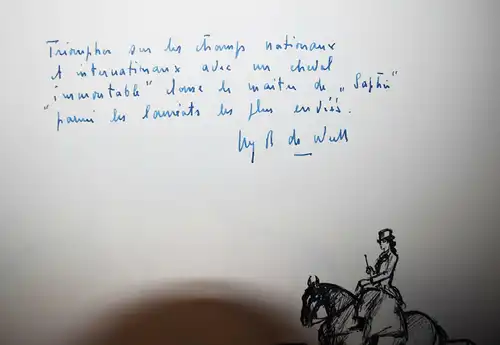 Triompher sur les champs nationaux
et internationaux avec un cheval
"immontable" classe le maître de „Saphir"
parmi les lauréats les plus enviés.
de